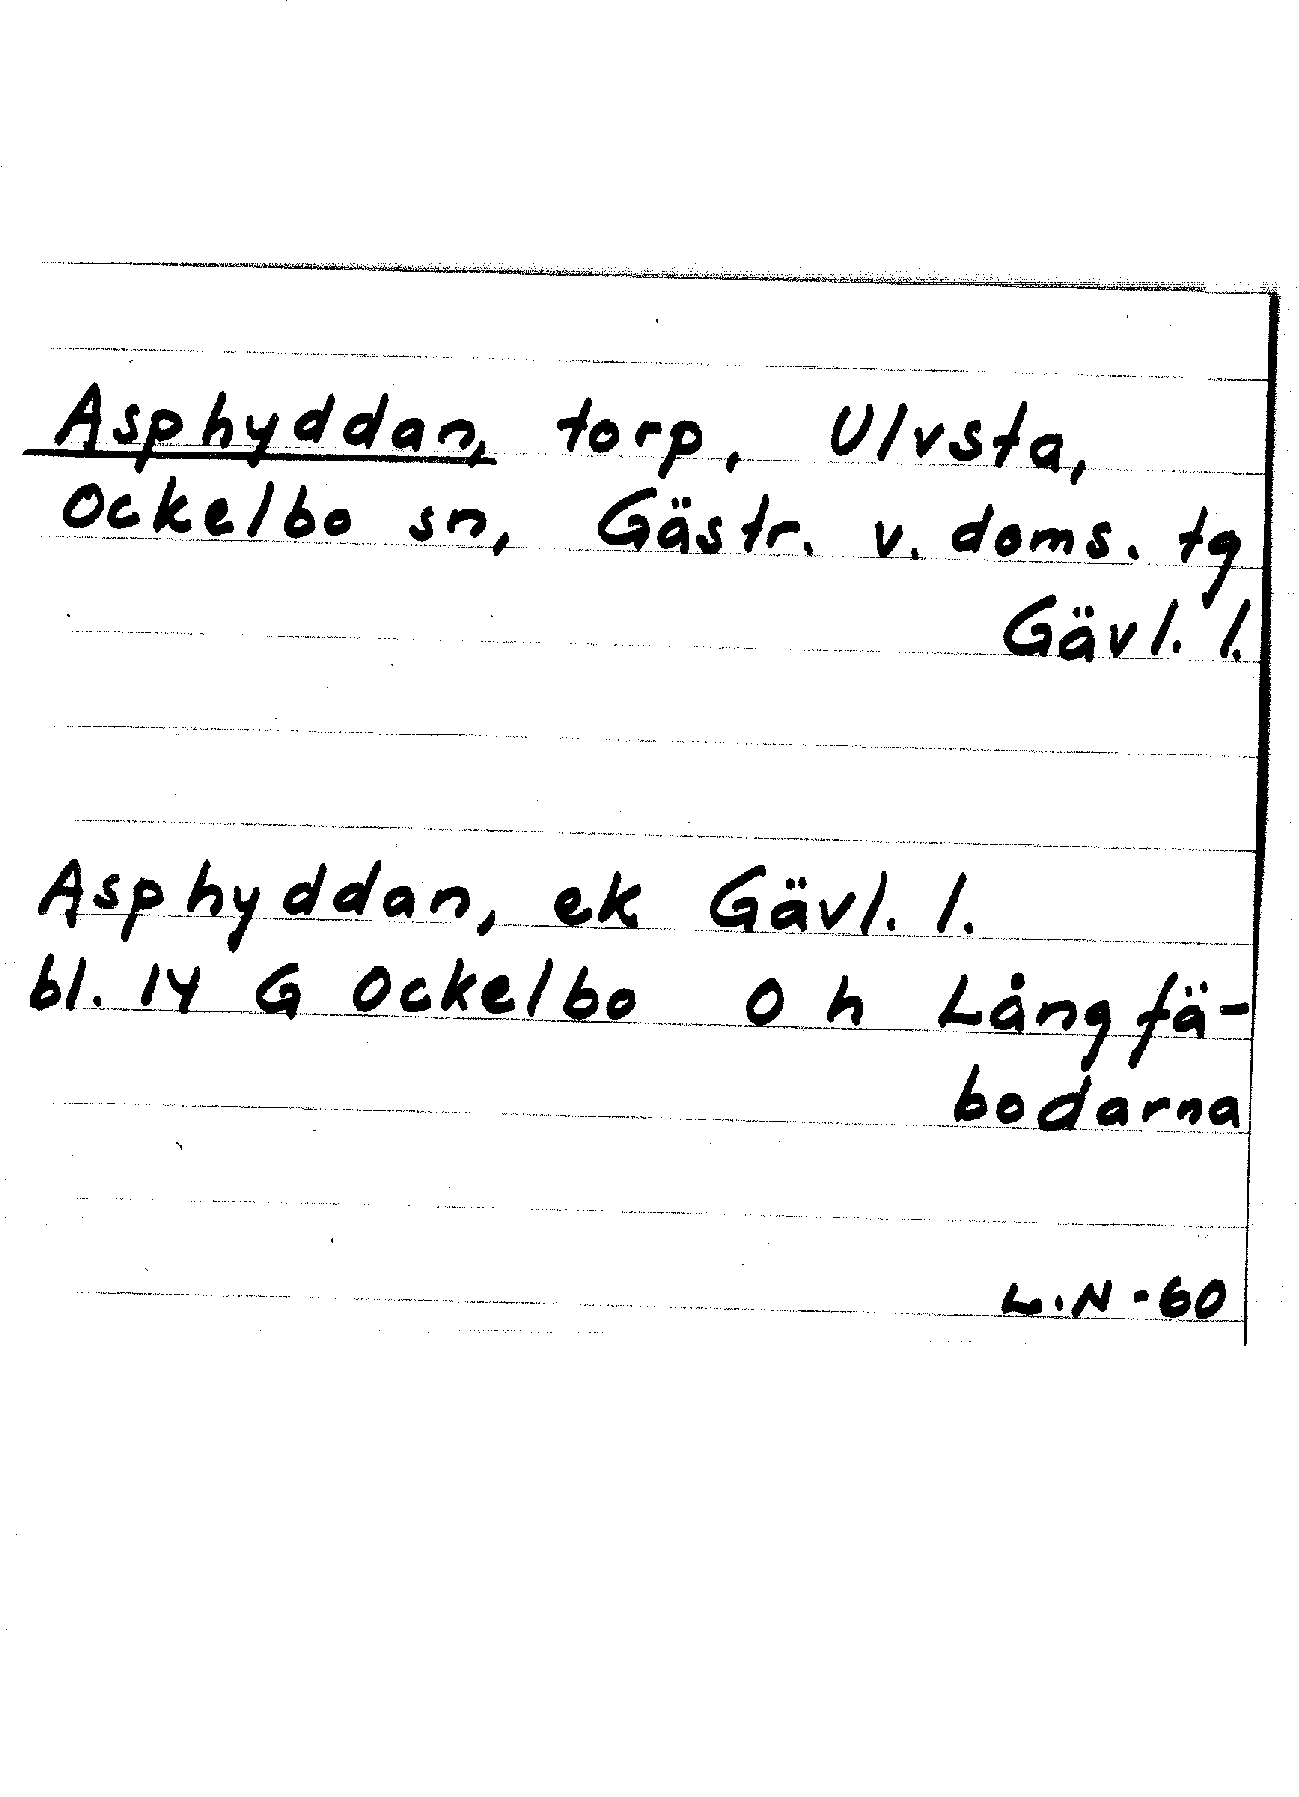 Asphyddan, torp, Ulvsta,
Ockelbo sn, Gästr. v. doms. tg
Gävl. l.
Asphyddan, ek Gävl. l.
bl. 14 G Ockelbo O h Långfä-
bodarna
L.N -60